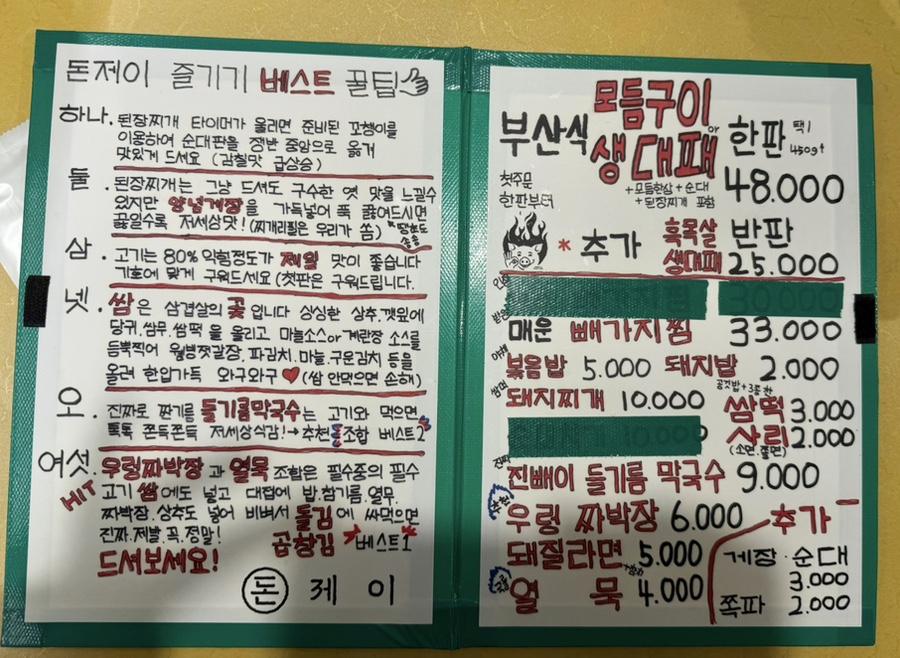 돈제이 즐기기 베스트 꿀팁
하나. 된장찌개 타이머가 울리면 준비된 꼬챙이를
이용하여 순대판을 정반 중앙으로 옮겨
맛있게 드셔요 (감칠맛 급상승)
둘. 된장찌개는 그냥 드셔도 구수한 옛 맛을 느낄수
있지만 양념게장을 가득넣어 푹 끓여드시면
끓일수록 저세상맛! (찌개리필은 우리가 쏨)
삼. 고기는 80% 익힘정도가 제일 맛이 좋습니다
기호에 맞게 구워드셔요 (첫판은 구워드립니다.
넷. 쌈은 삼겹살의 꽃입니다 싱싱한 상추.깻잎에
당귀.쌈무.쌈떡 을 올리고 마늘소스or계란장 소스를
듬뿍찍어 월병젓갈장.파김치.마늘.구운김치 등을
올려 한입가득 와구와구 ♥ (쌈 안먹으면 손해)
오. 진짜로 짠기름 들기름막국수는 고기와 먹으면
톡톡 쫀득쫀득 저세상식감!→추천조합 베스트2
여섯. 우렁짜박장 과 열묵 조합은 필수중의 필수
HIT 고기 쌈에도 넣고 대접에 밥.참기름.열무.
짜박장.상추도 넣어 비벼서 돌김에 싸먹으면
진짜.제발.꼭.정말! 곱창김 베스트1
드셔보세요!
돈제이
부산식 모듬구이 or 생대패 한판 택1 450g
첫주문 한판부터
+모듬한쌈+순대
+된장찌개 포함
48.000
* 추가 흑목살 생대패 반판 25.000
매운 빼가지찜 33.000
볶음밥 5.000 돼지밥 2.000
돼지찌개 10.000 쌈떡 3.000
사리 2.000
(소면.쫄면)
진빼이 들기름 막국수 9.000
우렁 짜박장 6.000
돼질라면 5.000
열묵 4.000
추가
게장·순대
3.000
쪽파 2.000